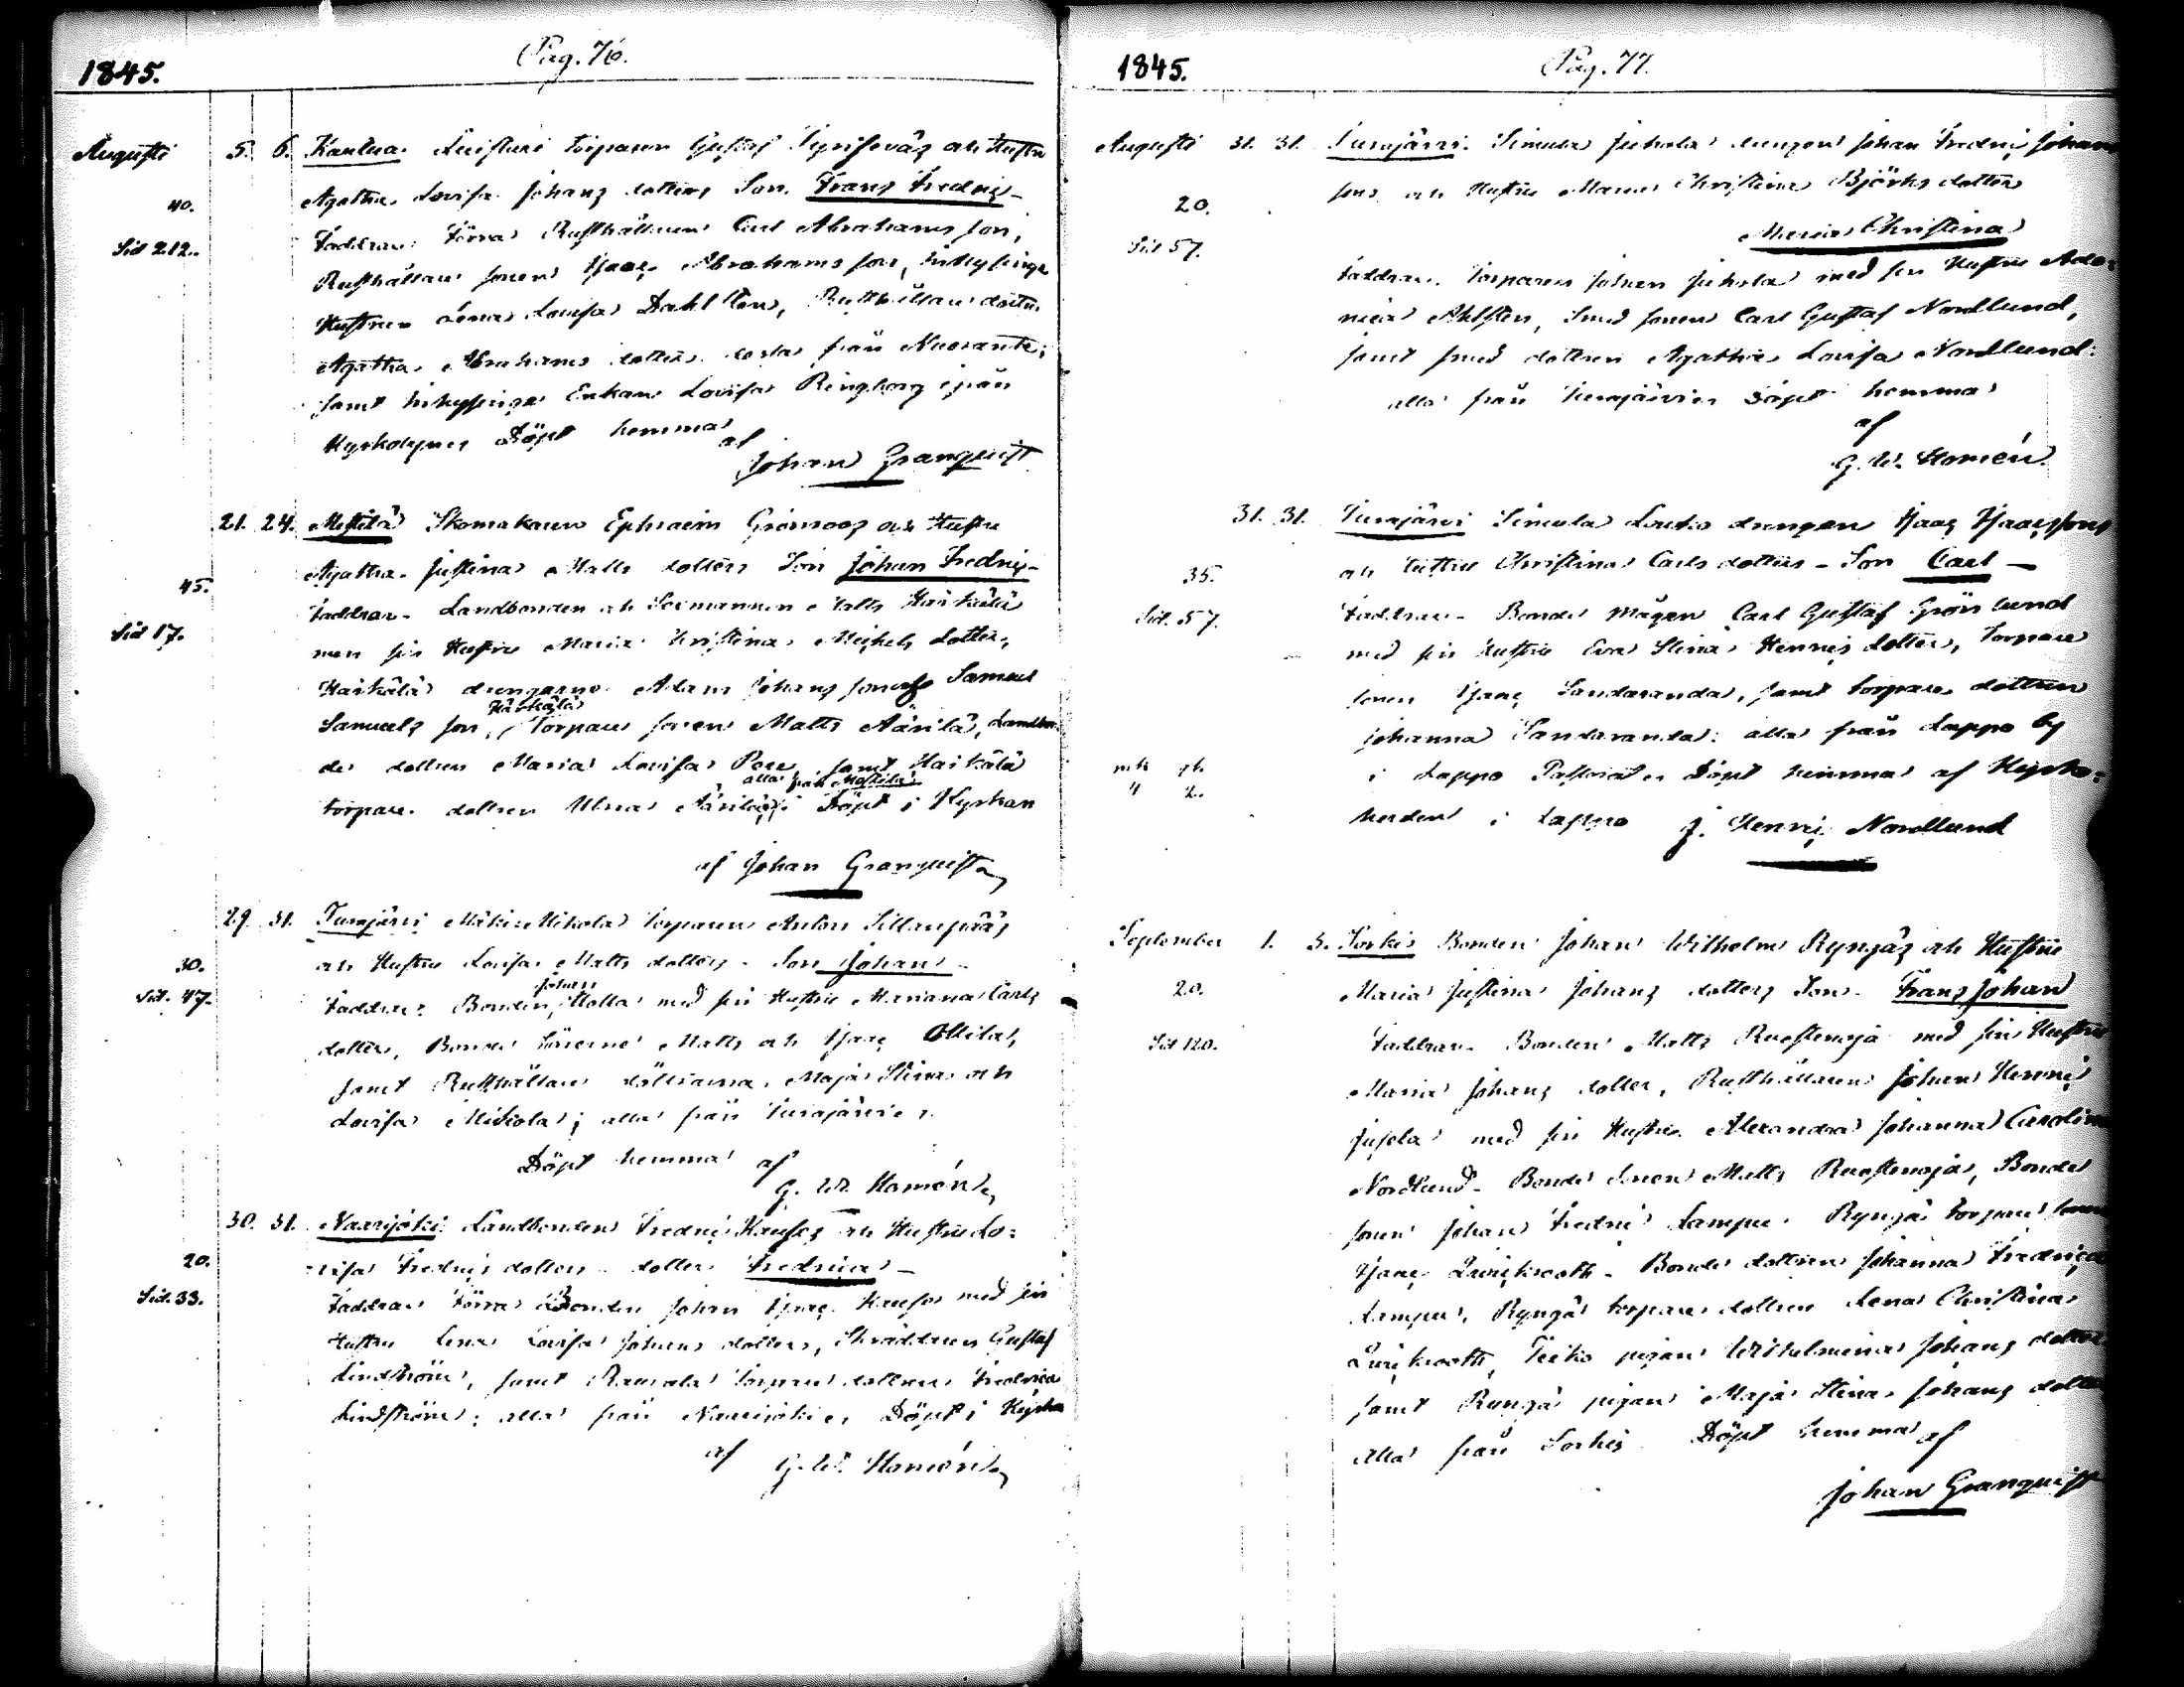 1845.
Pag. 76.
Augusti 5. 6. Kaulua. torparen Gustaf och Hustru
40. Agatha Lovisa Johans dotters Son. Frans Fredric -
Sid 212. Faddrar: Förra Rusthållaren Carl Abrahams son,
Rusthållare sonen Isaac Abrahams son, inhysinge
Hustrun Lena Lovisa Dahlsten, Rusthållare dottern
Agatha Abrahams dotter från
samt inhysinge Enkan Lovisa Ringborg ifrån
Kyrkobyn Döpt hemma
af
Johan Granquist
21. 24. Mestilä Skomakaren Ephraim Grönroos och Hustru
45. Agatha Justina Matts dotters Son Johan Fredric -
Sid 17. Faddrar - Landbonden och Matts Haikälä
med sin Hustru Maria Kristina Michels dotter,
Haikälä drengarne Adam Johans son Samuel
Samuels son, Torpare sonen Matts Äärilä, Landbon-
de dottren Maria Lovisa samt Haikälä
alla från Mestilä
torpare dottren Ulrica Döpt i Kyrkan
af Johan Granquist
29. 31. Turajärvi Mäkix Mikola torparen Anton Sillanpääs
30. och Hustru Lovisa Matts dotters - Son Johan -
Sid. 47. Faddrar: Bonden Johan Molla med sin Hustru Mariana Carls
dotter, Bonde Sönerne Matts och Isaac Ollila,
samt Rusthållare döttrarna Maja Stina och
Lovisa Mikola; alla från Turajärvi
Döpt hemma af
G. W. Homén
30. 31. Naarijoki Landbonden Fredric Kausos och Hustru Lo=
20. visa Fredrics dotters - dotter Fredrica -
Sid. 33. Faddrar Förra Bonden Johan Isaac med sin
Hustru Lena Lovisa Johans dotter, Skräddaren Gustaf
Lindström, samt torpare dottren Fredrica
Lindström; alla från Naarijoki Döpt i Kyrkan
af G. W. Homén
1845.
Pag. 77.
Augusti 31. 31. Turajärvi. Simula Juhola drengen Johan Fredric Johans
20. sons och Hustru Maria Christina Björks dotter
Sid 57. Maria Christina
Faddrar. Torparen Johan Juhola med sin Hustru
Ahlsten, Smed sonen Carl Gustaf Nordlund,
samt smed dottren Agatha Lovisa Nordlund:
alla från Turajärvi Döpt hemma
af
G. W. Homén
31. 31. Turajärvi Simula drengen Isaac Isaacssons
35. och Hustru Christina Carls dotters - Son Carl -
Sid. 57. Faddrar - Bonde mågen Carl Gustaf Grönlund
med sin Hustru Eva Stina Henrics dotter, Torpare
sonen Isaac Sandaranda, samt torpare dottren
Johanna Sandaranda: alla från Lappo by
i Lappo Döpt hemma af Kyrko=
2.
herden i Lappo J. Henric Nordlund
September 1. 3. Sorkis Bonden Johan Wilhelm Ryngäs och Hustru
20. Maria Justina Johans dotters Son - Frans Johan
Sid 120. Faddrar - Bonden Matts Ruostenoja med sin Hustru
Maria Johans dotter, Rusthållaren Johan Henric
med sin Hustru Alexandra Johanna Carolina
Nordlund - Bonde Sonen Matts Ruostenoja, Bonde
sonen Johan Fredric Lampu. Ryngä torpare sonen
Isaac - Bonde dottren Johanna Fredrica
Lampu, Ryngä torpare dottren Lena Christina
pigan Wilhelmina Johans dotter
samt Ryngä pigan Maja Stina Johans dotter
alla från Sorkis Döpt hemma af
Johan Granquist